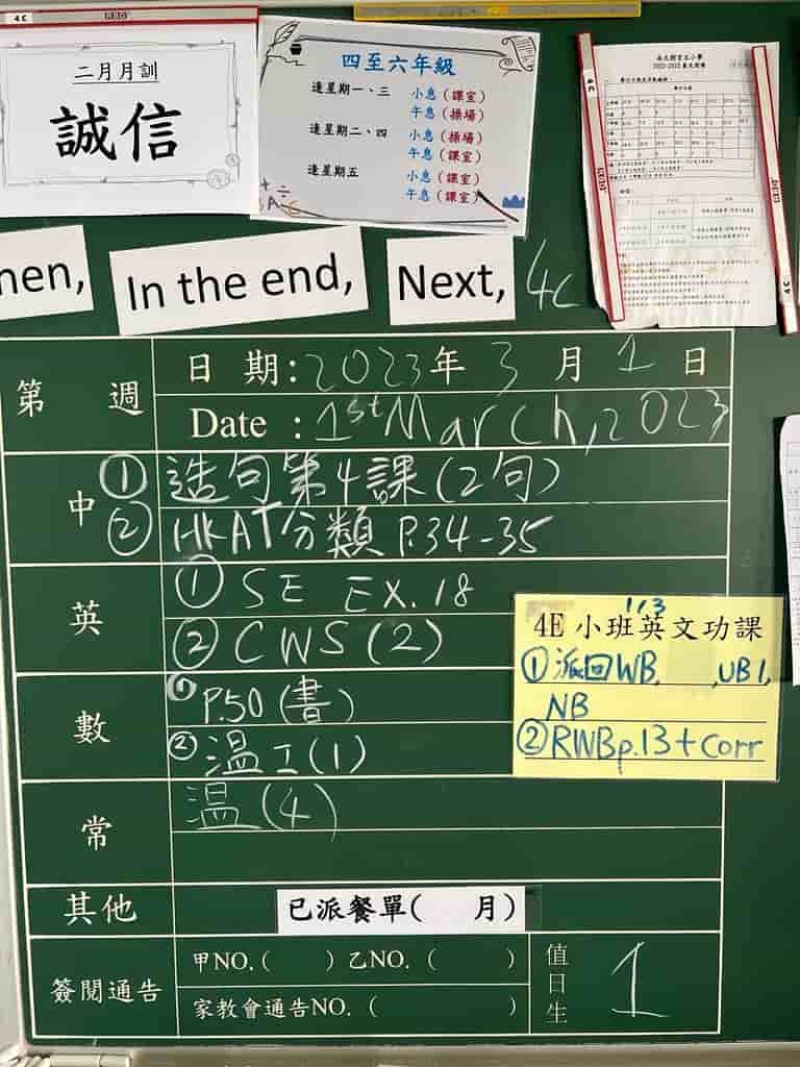 4C
二月月訓
誠信
四至六年級
逢星期一、三 小息（課室）
午息（操場）
逢星期二、四 小息（操場）
午息（課室）
逢星期五 小息（課室）
午息（課室）
hen,
In the end,
Next,
4C
第 週
日 期:2023年3月1日
Date :1st March, 2023
中
① 造句第4課(2句)
② HKAT分類 P.34-35
英
① SE EX.18
② CWS(2)
4E 小班英文功課
1/3
① 派回WB, ,UB1,
NB
② RWBp.13+Corr
數
① P.50(書)
② 温工(1)
常
温(4)
其他
已派餐單( 月)
簽閱通告
甲NO.( )乙NO.( )
家教會通告NO.( )
值日生
1